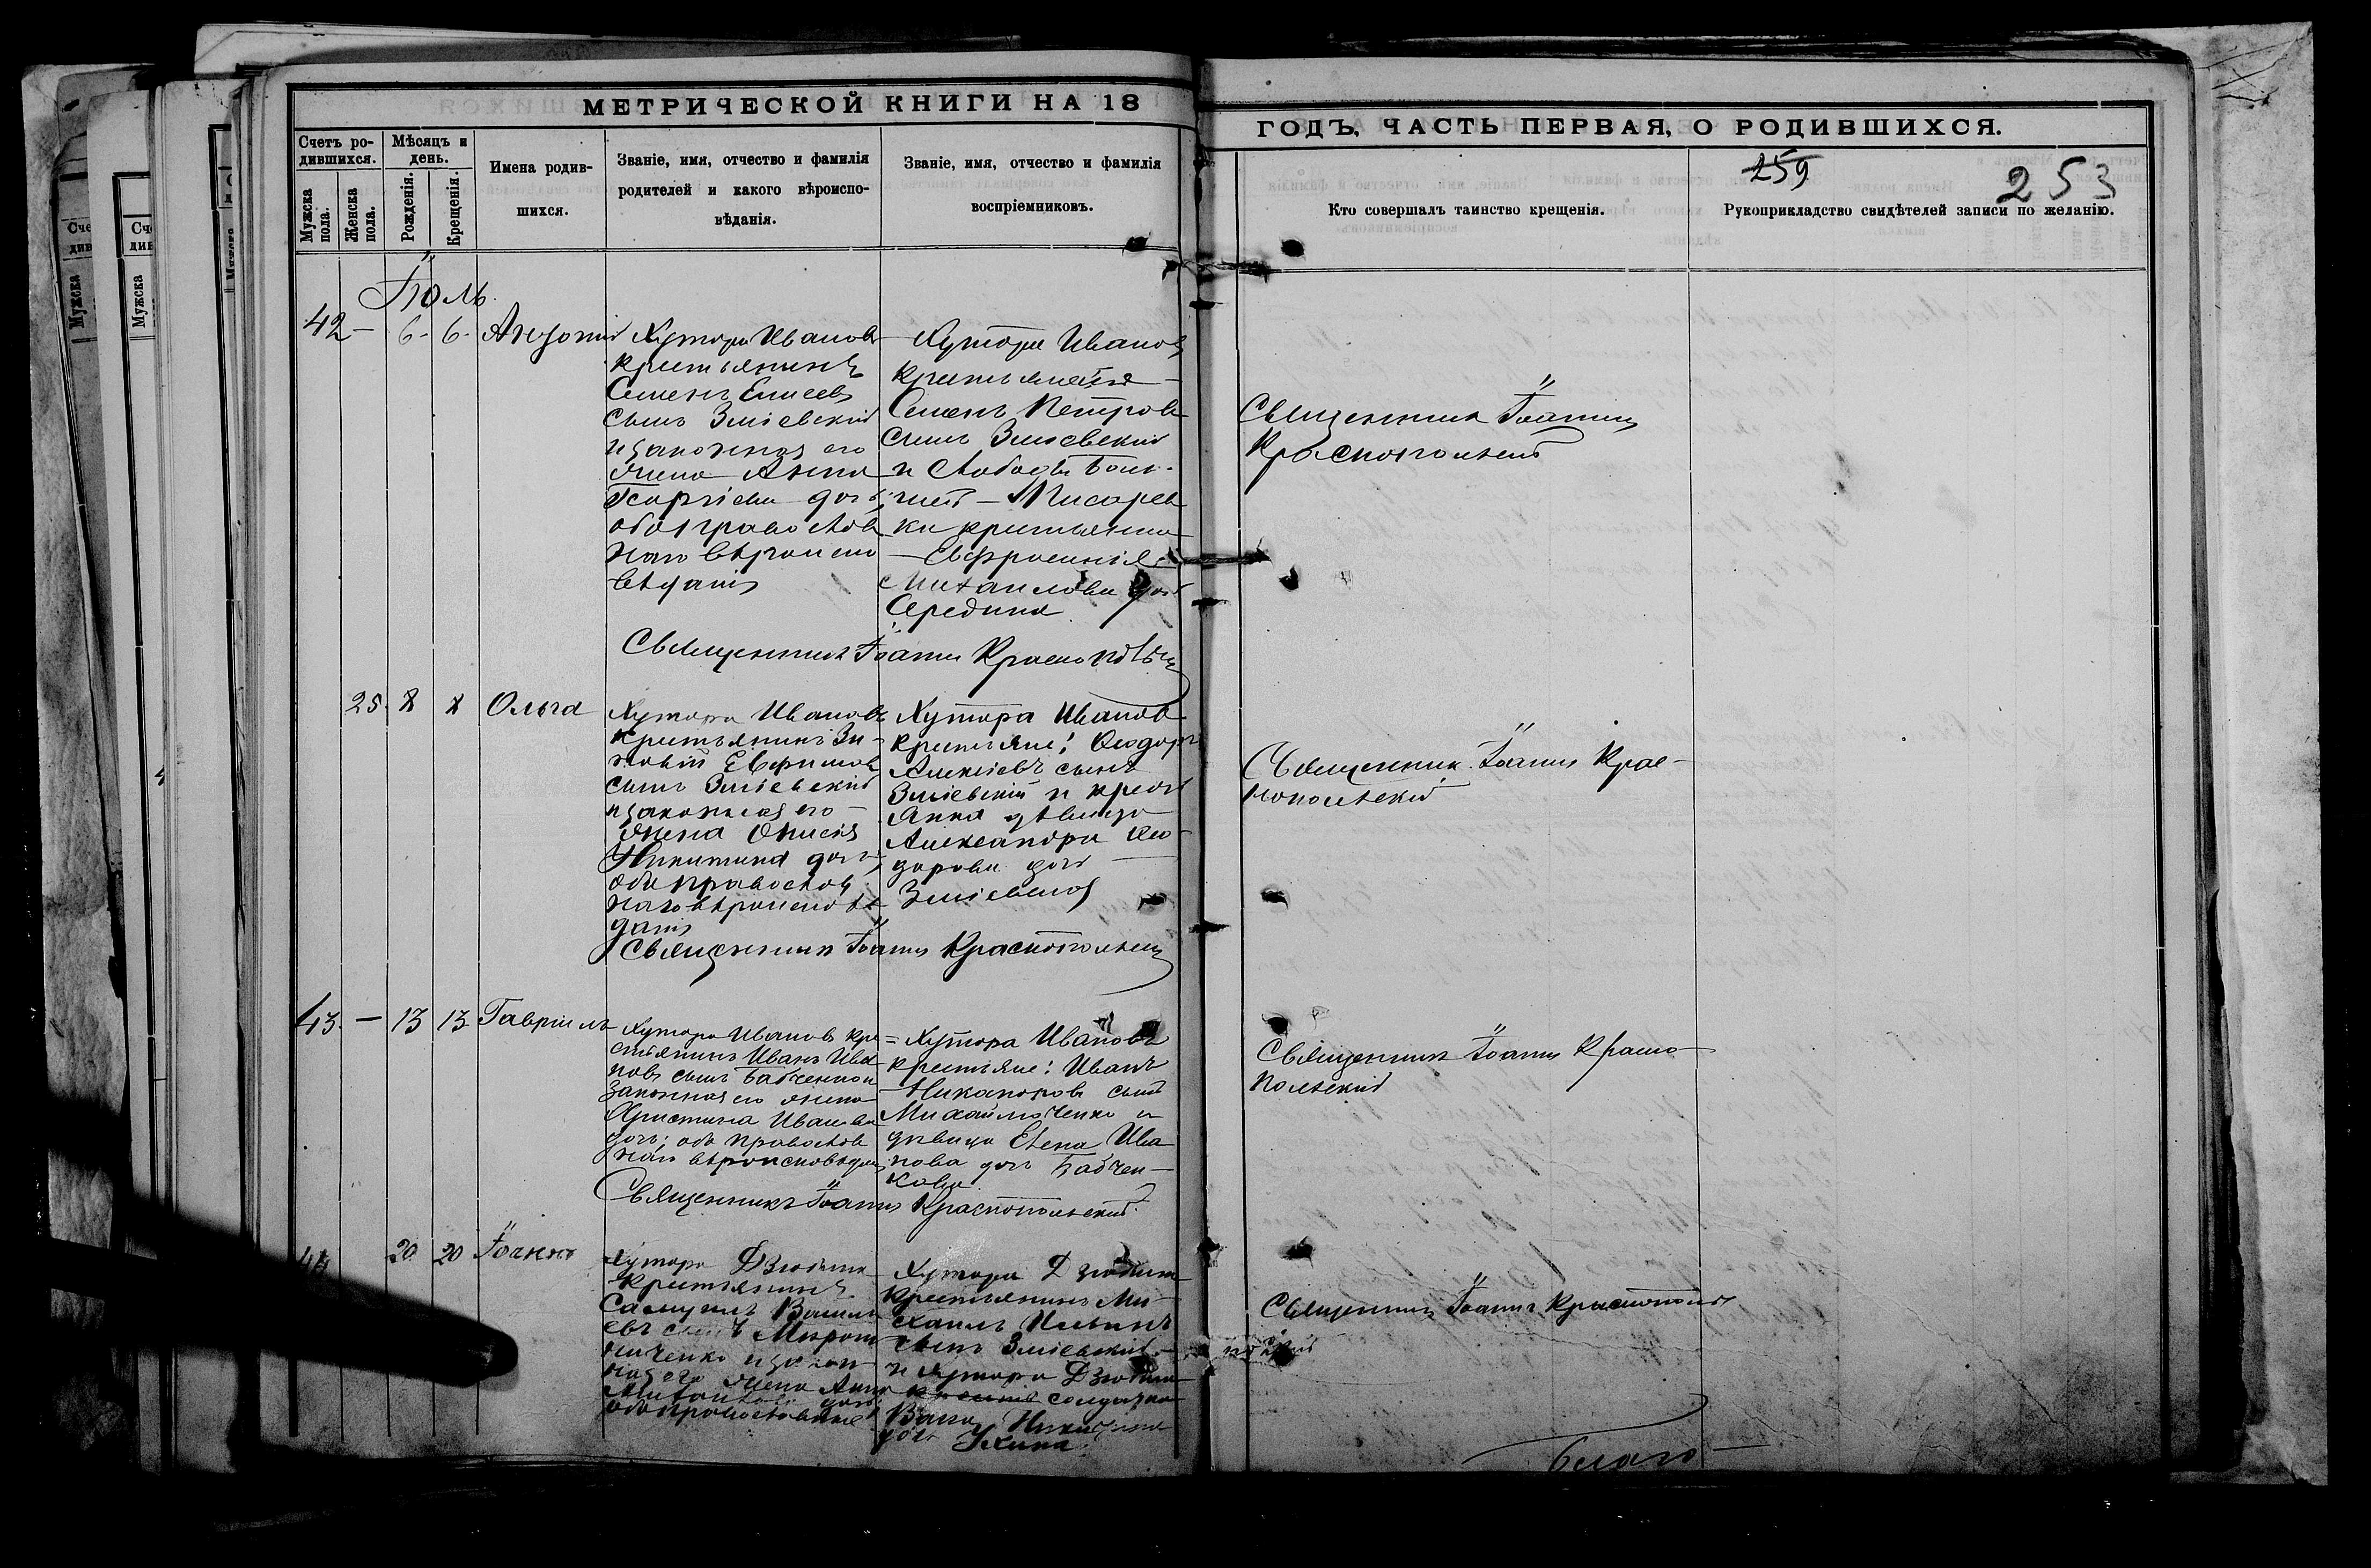 МЕТРИЧЕСКОЙ КНИГИ НА 18
ГОДЪ, ЧАСТЬ ПЕРВАЯ, О РОДИВШИХСЯ.
Счетъ ро-
дившихся.
Мужска
пола.
Женска
пола.
Мѣсяцъ и
день.
Рожденія.
Крещенія.
Имена родив-
шихся.
Званіе, имя, отчество и фамилія
родителей и какого вѣроиспо-
вѣданія.
Званіе, имя, отчество и фамилія
воспріемниковъ.
Кто совершалъ таинство крещенія.
Рукоприкладство свидѣтелей записи по желанію.
259
253
Іюль
42 — 6 - 6 -
Хутора Иванов
крестьянинъ
Семенъ Елисеевъ
сынъ Зміевскій
и законная его
жена Анна
Георгіева дочь
оба православ
наго вѣроиспо
вѣданія
Хутора Иванов
Семенъ Петровъ
сынъ Зміевскій
и слободы Боль-
шой - Писарев
ки крестьянка
Евфросинія
Михаилова дочь
Середина
Священникъ Іоаннъ
Краснопольскій
Священникъ Іоаннъ Краснопольскій
25 8 8 Ольга
Хутора Иванов
крестьянинъ Зи-
новій Евфимовъ
сынъ Зміевскій
и законная его
жена Анисія
Никитина дочь
оба православ
наго вѣроисповѣ
данія
Хутора Иванов
крестьяне: Ѳеодоръ
Алексіевъ сынъ
Зміевскій и
дѣвица
Александра Ѳео
дорова дочь
Зміевская
Священникъ Іоаннъ Крас-
нопольскій
Священникъ Іоаннъ Краснопольскій
43 — 13 13 Гавріилъ
Хутора Иванов кре
стьянинъ Иванъ Ива
новъ сынъ Бабченко и
законная его жена
Христина Иванова
дочь; оба православ
наго вѣроисповѣдан
= Хутора Иванов
крестьяне: Иванъ
Никаноровъ сынъ
Михайличенко и
дѣвица Елена Ива
нова дочь Бабчен-
кова
Священникъ Іоаннъ Красно
польскій
Священникъ Іоаннъ Краснопольскій
44 20 20 Іоаннъ
Хутора
крестьянинъ
Самуилъ Василь
евъ сынъ Мирош
ниченко и закон
ная его жена Анна
дочь
оба православные
Хутора
крестьянинъ Ми-
хаилъ Ильинъ
сынъ Зміевскій
и хутора
солдатка
дочь
Священникъ Іоаннъ Краснополь
скій
Благо